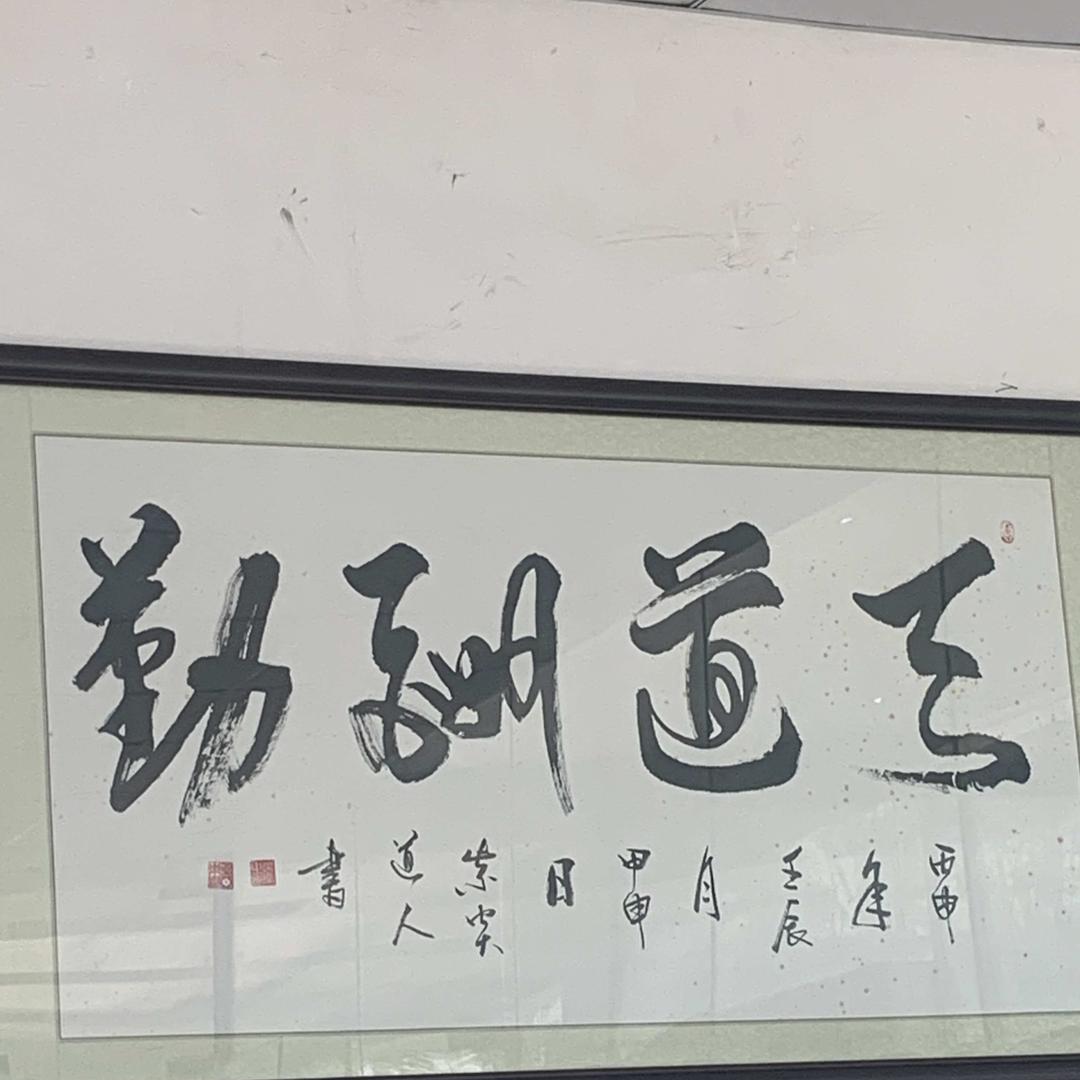 天道酬勤
丙申年壬辰月甲申日紫道人書